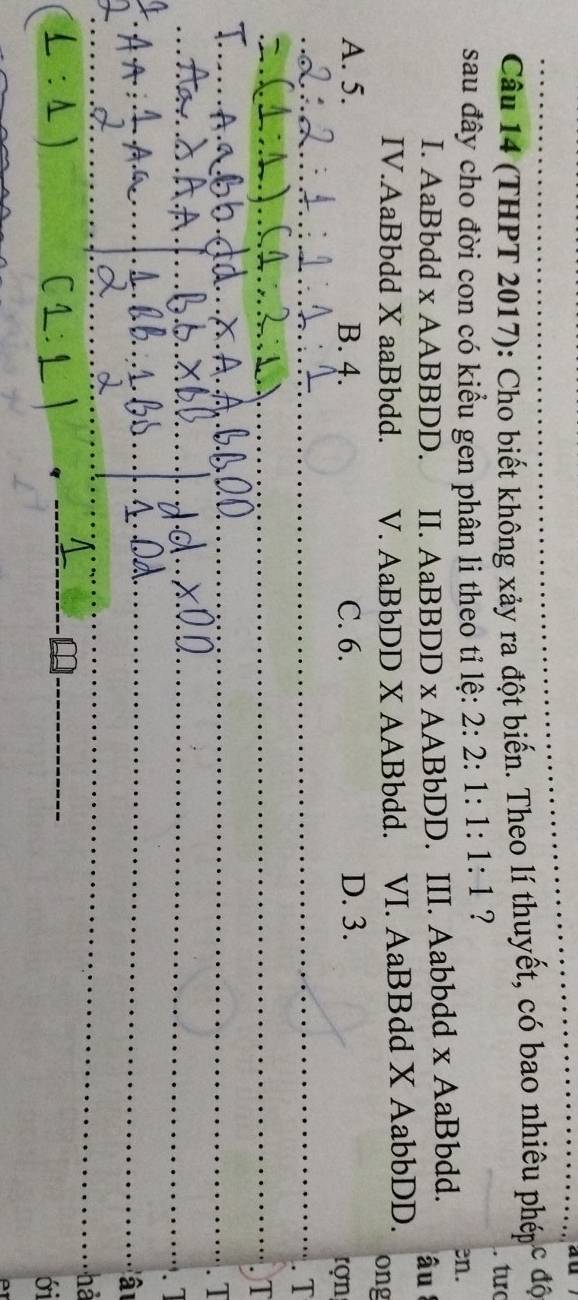 Câu 14 (THPT 2017): Cho biết không xảy ra đột biến. Theo lí thuyết, có bao nhiêu phép
sau đây cho đời con có kiểu gen phân li theo tỉ lệ: 2: 2: 1: 1: 1: 1 ?
I. AaBbdd x AABBDD. II. AaBBDD x AABbDD. III. Aabbdd x AaBbdd.
IV.AaBbdd X aaBbdd. V. AaBbDD X AABbdd. VI. AaBBdd X AabbDD.
A. 5. B. 4. C. 6. D. 3.
2:2:1:1:1:1
= (1:1)(1:2:1)
I AaBbdd x AABBDD
Aa x AA | Bb x BB | dd x DD
1/2 AA : 1/2 Aa | 1/2 BB : 1/2 Bb | 1 Dd
(1:1) (1:1) 1
c độ
. tươ
en.
âu
ong
rợn
. T
. T
. T
. T
âu
hả
ới